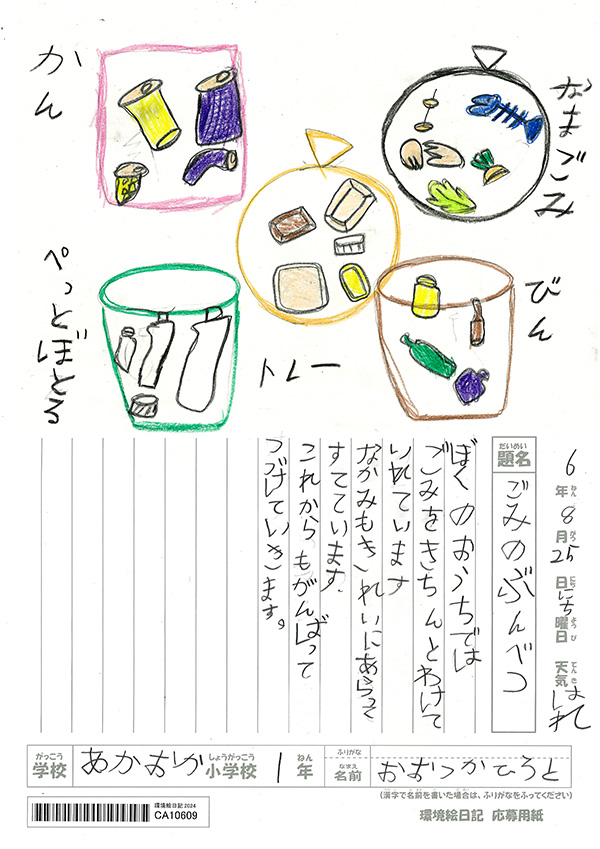 かん
なまごみ
ぺっとぼとる
トレー
びん
6年8月25日にち曜日 天気はれ
ねん
がつ
にち
ようび
てんき
だいめい
題名
ごみのぶんべつ
ぼくのおうちでは
ごみをきちんとわけて
いれています
なかみもきれいにあらって
すてています。
これからもがんばって
つづけていきます。
がっこう
学校
しょうがっこう
小学校
1
ねん
年
ふりがな
なまえ
名前
おおつかひろと
(漢字で名前を書いた場合は、ふりがなをふってください)
環境絵日記 2024
CA10609
環境絵日記 応募用紙